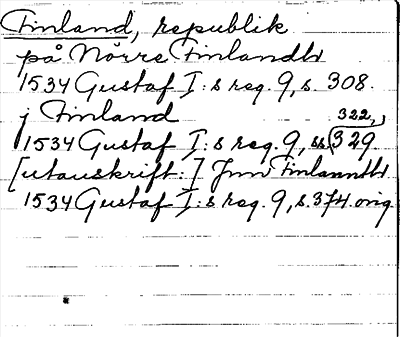 Finland, republik
på Nörre Finlandh
1534 Gustaf I:s reg. 9, s. 308.
j Finland 322,
1534 Gustaf I:s reg. 9, ss. 329
[utanskrift:] Jnn Finlanndh
1534 Gustaf I:s reg. 9, s. 374. orig